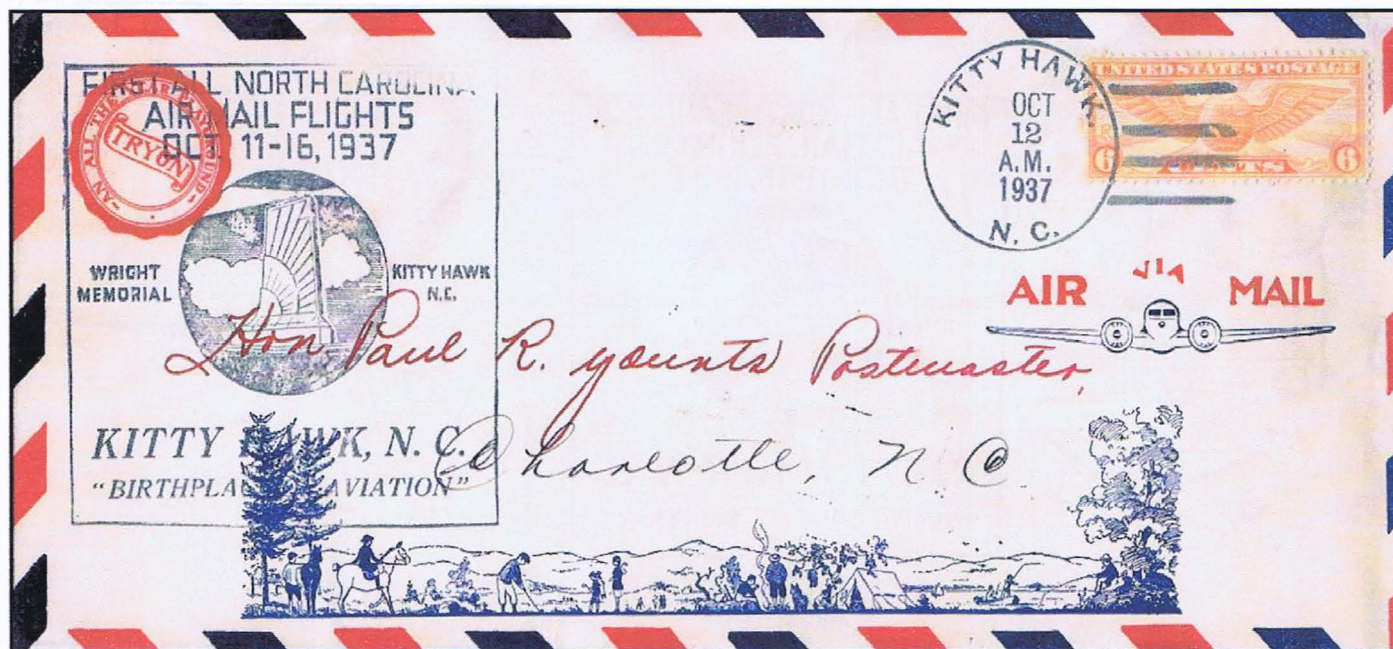 FIRST ALL NORTH CAROLINA
AIR MAIL FLIGHTS
OCT. 11-16, 1937
AN ALL THE YEAR PLAYGROUND
TRYON
WRIGHT
MEMORIAL
KITTY HAWK
N.C.
KITTY HAWK, N. C.
"BIRTHPLACE OF AVIATION"
KITTY HAWK.
OCT
12
A.M.
1937
N. C.
UNITED STATES POSTAGE
6 CENTS 6
VIA
AIR MAIL
Hon Paul R. Younts Postmaster,
Charlotte, N C